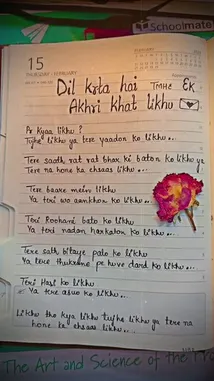 Schoolmate
15
THURSDAY - FEBRUARY
FEBRUARY
Dil krta hai TMHE EK
Akhri khat likhu
Pr kyaa likhu ?
Tujhe likhu ya tere yaadon ko likhu...
Tere saath rat rat bhar ki baton ko likhu ya
Tere na hone ka ehsaas likhu...
Tere baare mein likhu
Ya teri wo aankhon ko likhu...
Teri Roohani bato ko likhu
Ya teri nadan harkaton ko likhu...
Tere sath bitaye palo ko likhu
Ya tere thukrane pe huve dard ko likhu...
Teri Hasi ko likhu
Ya Tere ko likhu...
Likhu tho kya likhu tujhe likhu ya tere na
hone ka ehsaas likhu...
The Art and Science of the